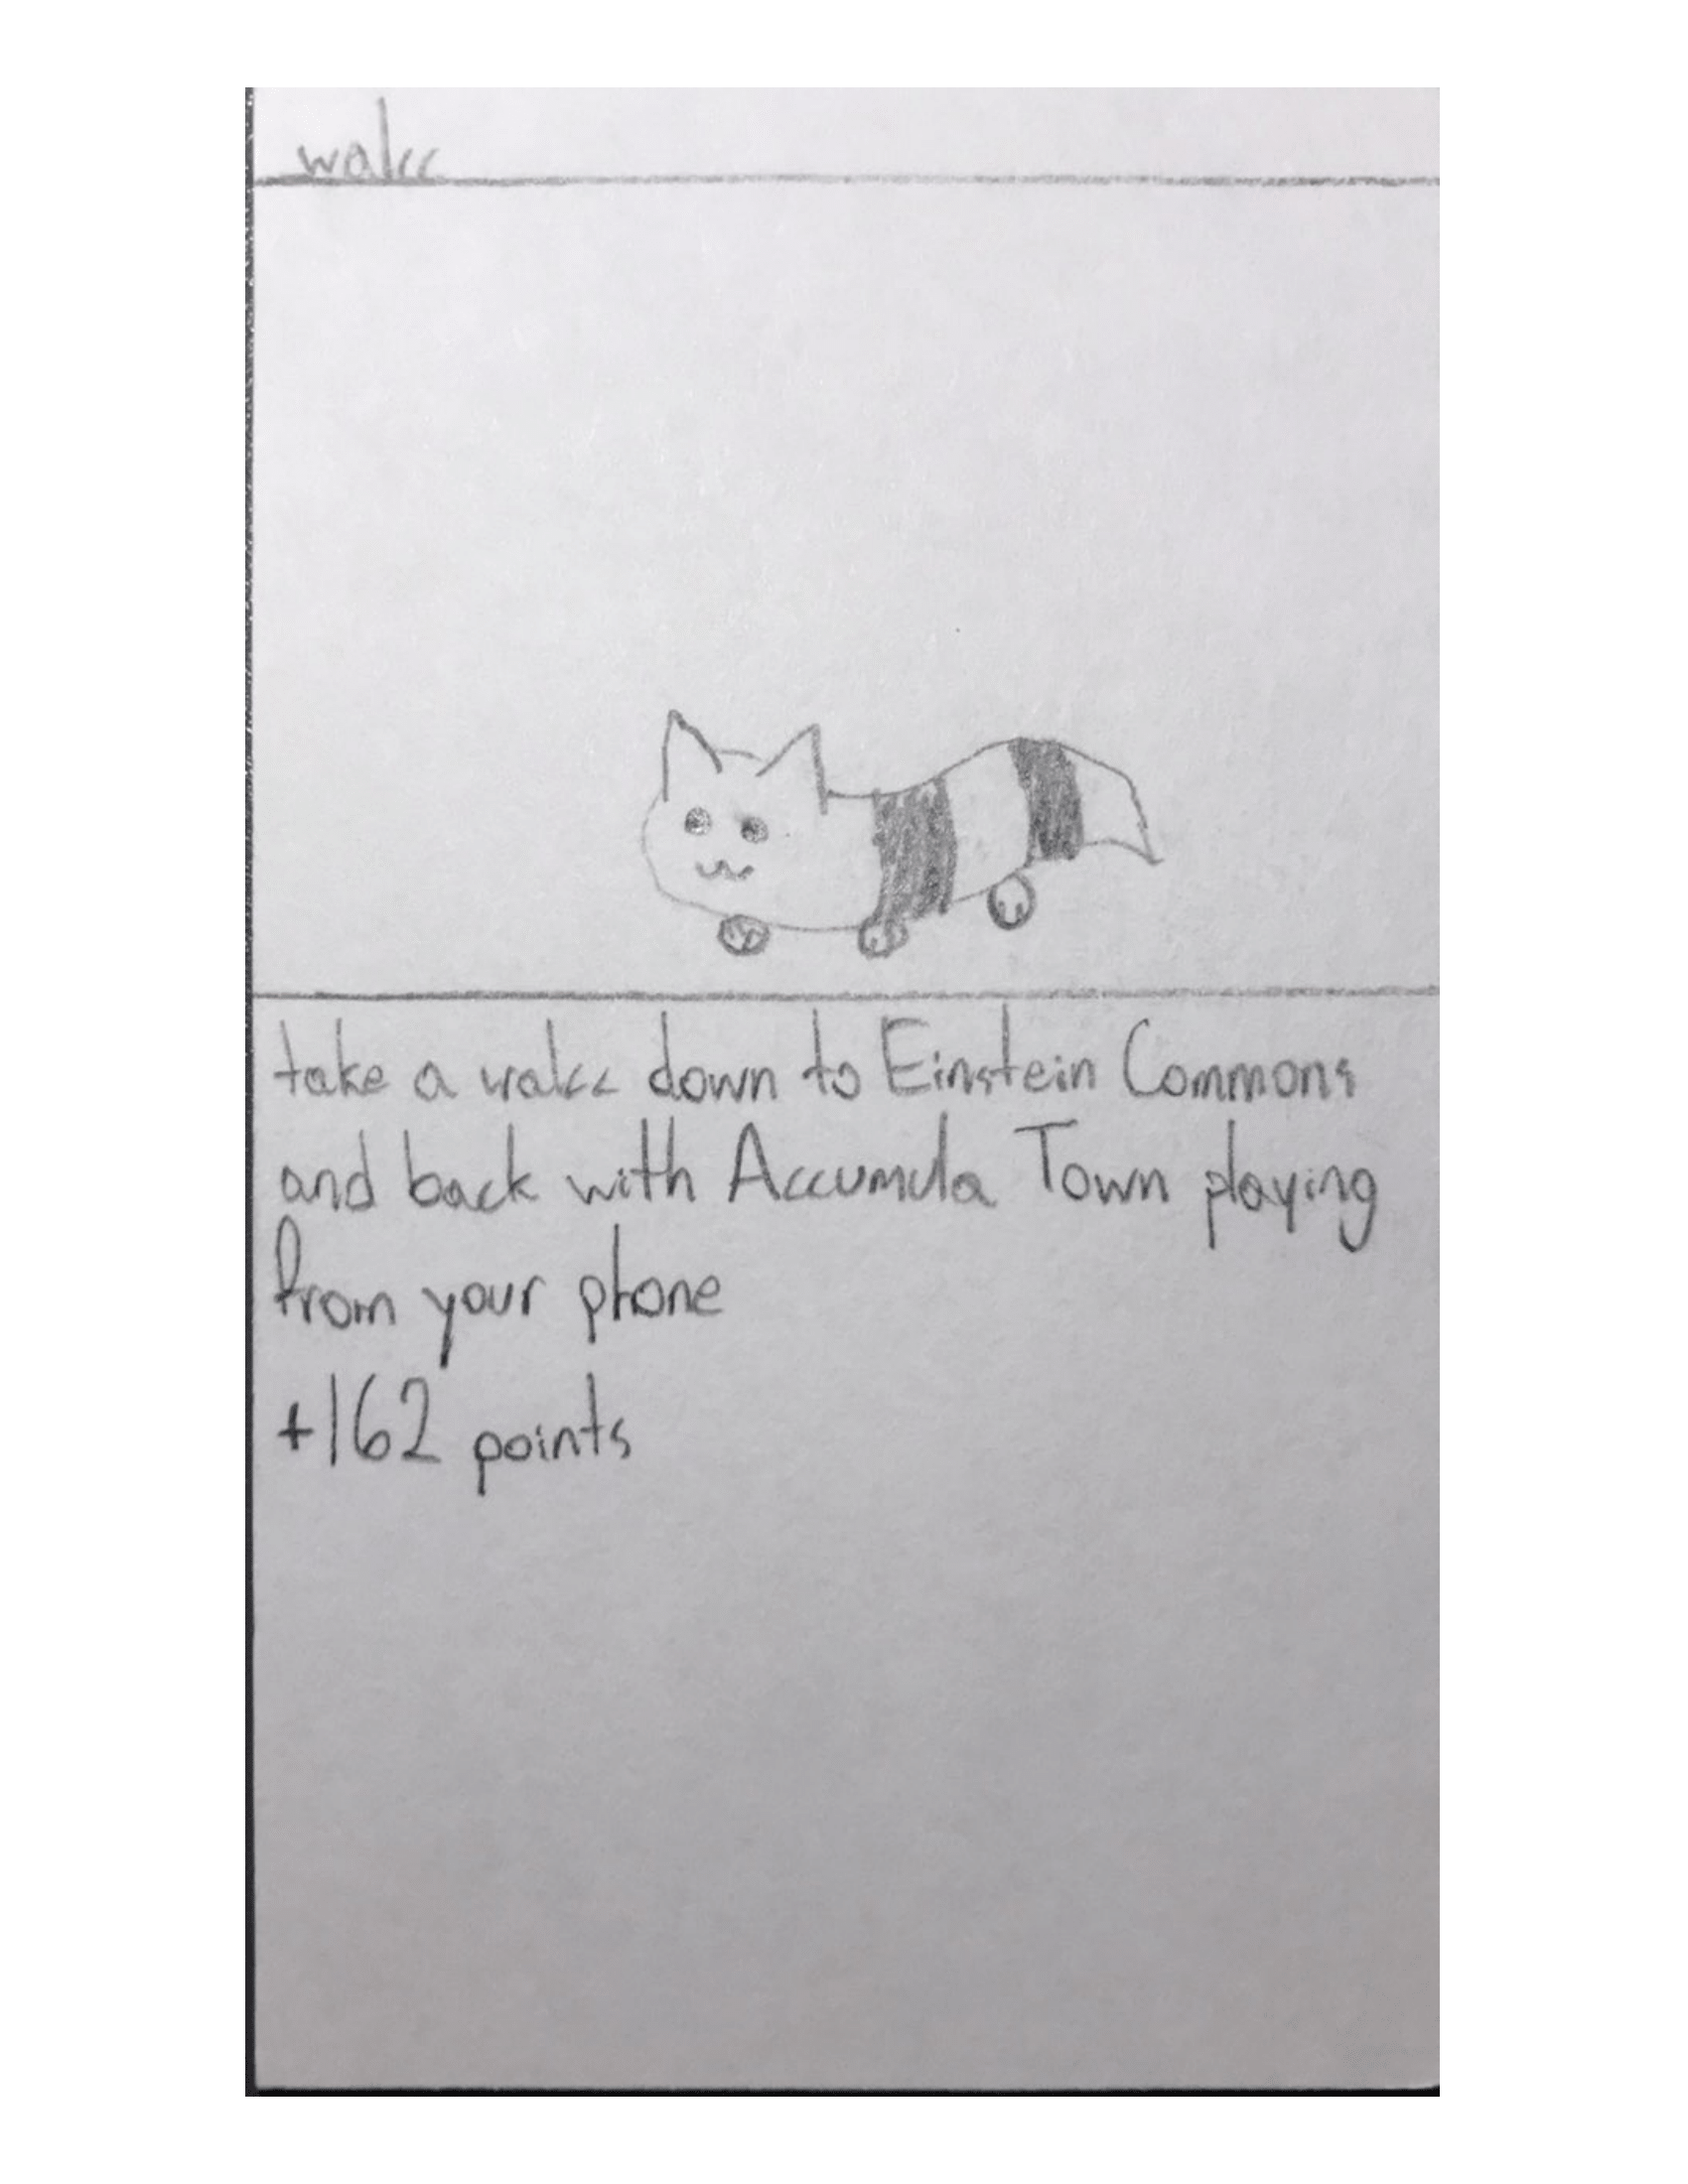 walcc
take a walcc down to Einstein Commons
and back with Accumula Town playing
from your phone
+162 points